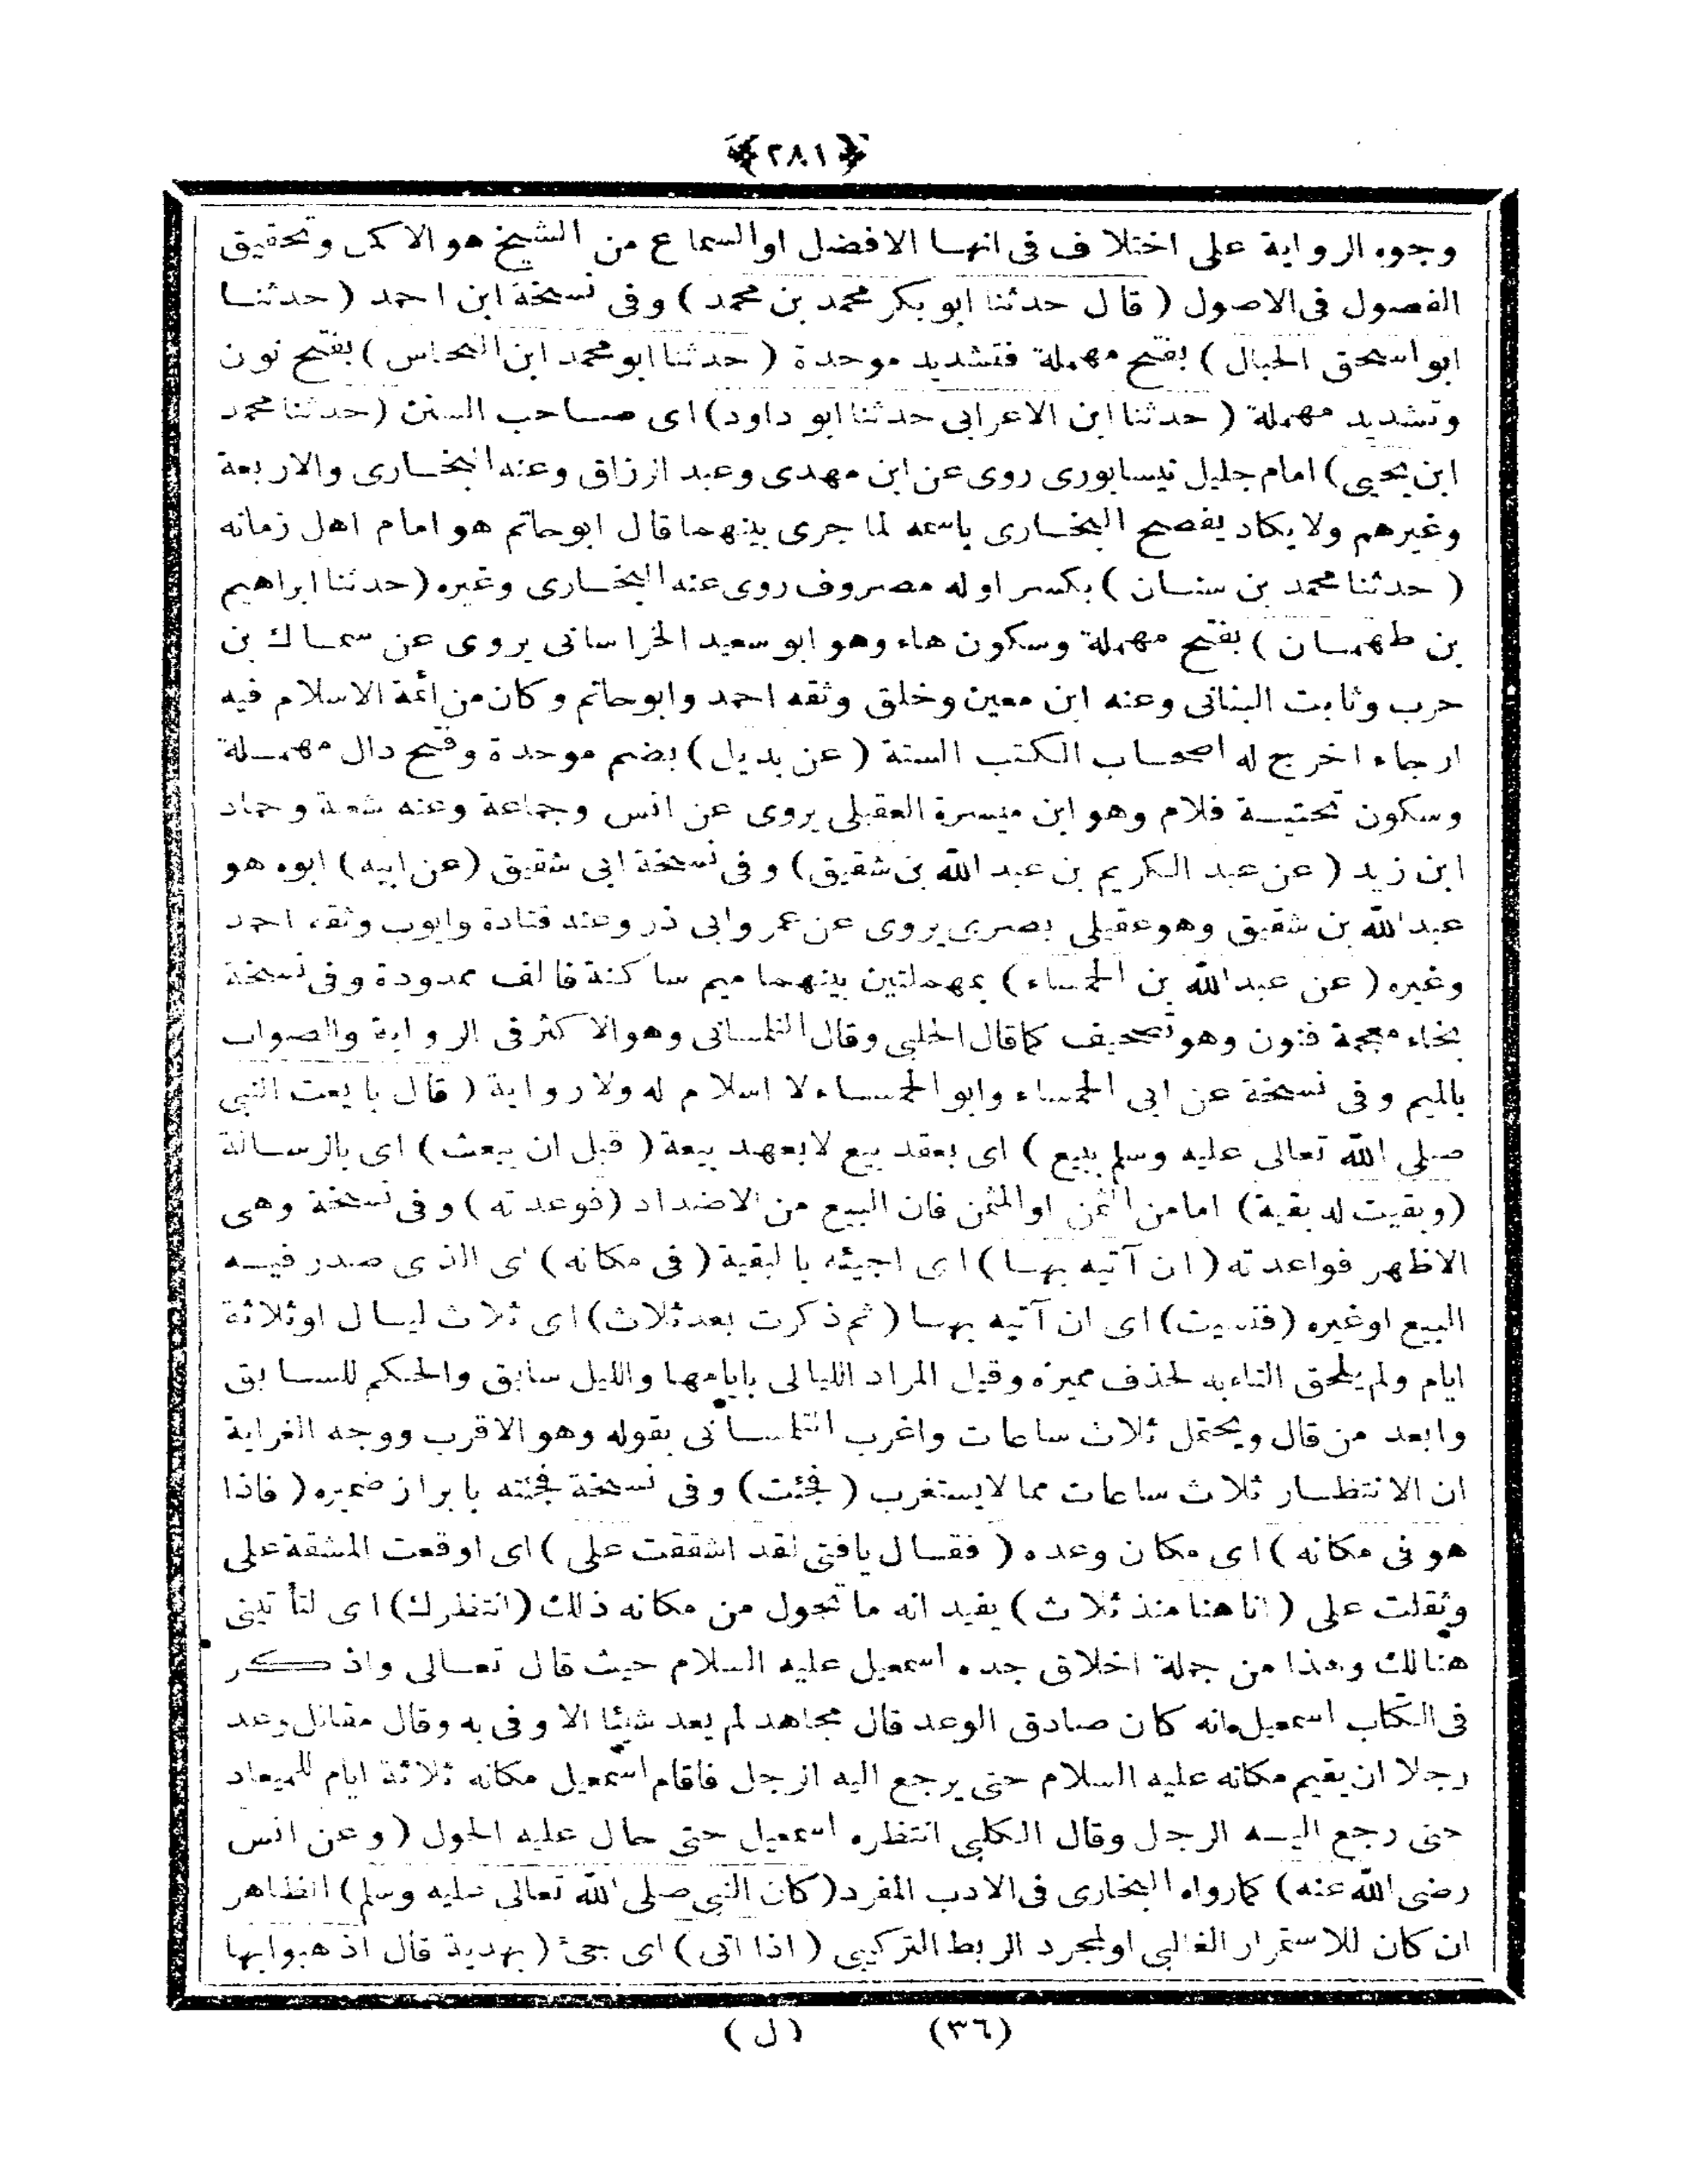 ﴿٢٨١﴾
وجوه الرواية على اختلاف فى انها الافضل او السماع من الشيخ هو الاكمل وتحقيق
الفصول فى الاصول ( قال حدثنا ابو بكر محمد بن محمد ) وفى نسخة ابن احمد ( حدثنا
ابو اسحق الحبال ) بفتح مهملة فتشديد موحدة ( حدثنا ابو محمد ابن النحاس ) بفتح نون
وتشديد مهملة ( حدثنا ابن الاعرابى حدثنا ابو داود) اى صاحب السنن (حدثنا محمد
ابن يحيى) امام جليل نيسابورى روى عن ابن مهدى وعبد الرزاق وعنه البخارى والاربعة
وغيرهم ولا يكاد يفصح البخارى باسمه لما جرى بينهما قال ابو حاتم هو امام اهل زمانه
( حدثنا محمد بن سنان ) بكسر اوله مصروف روى عنه البخارى وغيره (حدثنا ابراهيم
بن طهمان ) بفتح مهملة وسكون هاء وهو ابو سعيد الخراسانى يروى عن سماك بن
حرب وثابت البنانى وعنه ابن معين وخلق وثقه احمد وابو حاتم وكان من ائمة الاسلام فيه
ارجاء اخرج له اصحاب الكتب الستة ( عن بديل) بضم موحدة وفتح دال مهملة
وسكون تحتية فلام وهو ابن ميسرة العقيلى يروى عن انس وجماعة وعنه شعبة وحماد
ابن زيد ( عن عبد الكريم بن عبد الله بن شقيق) وفى نسخة ابى شقيق (عن ابيه) ابوه هو
عبد الله بن شقيق وهو عقيلى بصرى يروى عن عمر وابى ذر وعنه قتادة وايوب وثقه احمد
وغيره ( عن عبد الله بن الحمساء ) بمهملتين بينهما ميم ساكنة فالف ممدودة وفى نسخة
بخاء معجمة فنون وهو تصحيف كما قال الحلبى وقال التلمسانى وهو الاكثر فى الرواية والصواب
بالميم وفى نسخة عن ابى الحمساء وابو الحمساء لا اسلام له ولا رواية ( قال بايعت النبى
صلى الله تعالى عليه وسلم ببيع ) اى بعقد بيع لا بعهد بيعة ( قبل ان يبعث ) اى بالرسالة
(وبقيت له بقية) اما من الثمن او المثمن فان البيع من الاضداد (فوعدته ) وفى نسخة وهى
الاظهر فواعدته ( ان آتيه بها ) اى اجيئه بالبقية ( فى مكانه ) اى الذى صدر فيه
البيع اوغيره (فنسيت) اى ان آتيه بها ( ثم ذكرت بعد ثلاث) اى ثلاث ليال اوثلاثة
ايام ولم يلحق التاء به لحذف مميزه وقيل المراد الليالى بايامها والليل سابق والحكم للسابق
وابعد من قال ويحتمل ثلاث ساعات واغرب التلمسانى بقوله وهو الاقرب ووجه الغرابة
ان الانتظار ثلاث ساعات مما لا يستغرب ( فجئت) وفى نسخة فجئته بابراز ضميره ( فاذا
هو فى مكانه ) اى مكان وعده ( فقال يافتى لقد اشققت على ) اى اوقعت المشقة على
وثقلت على ( انا هنا منذ ثلاث ) يفيد انه ما تحول من مكانه ذلك (انتظرك) اى لتأتينى
هنالك وهذا من جملة اخلاق جده اسمعيل عليه السلام حيث قال تعالى واذكر
فى الكتاب اسمعيل انه كان صادق الوعد قال مجاهد لم يعد شيئا الا وفى به وقال مقاتل وعد
رجلا ان يقيم مكانه عليه السلام حتى يرجع اليه الرجل فاقام اسمعيل مكانه ثلاثة ايام للميعاد
حتى رجع اليه الرجل وقال الكلبى انتظره اسمعيل حتى حال عليه الحول ( وعن انس
رضى الله عنه ) كما رواه البخارى فى الادب المفرد ( كان النبى صلى الله تعالى عليه وسلم) الظاهر
ان كان للاستمرار الغالبى او لمجرد الربط التركيبى ( اذا اتى ) اى جئ ( بهدية قال اذهبوا بها
(٣٦) (ل)